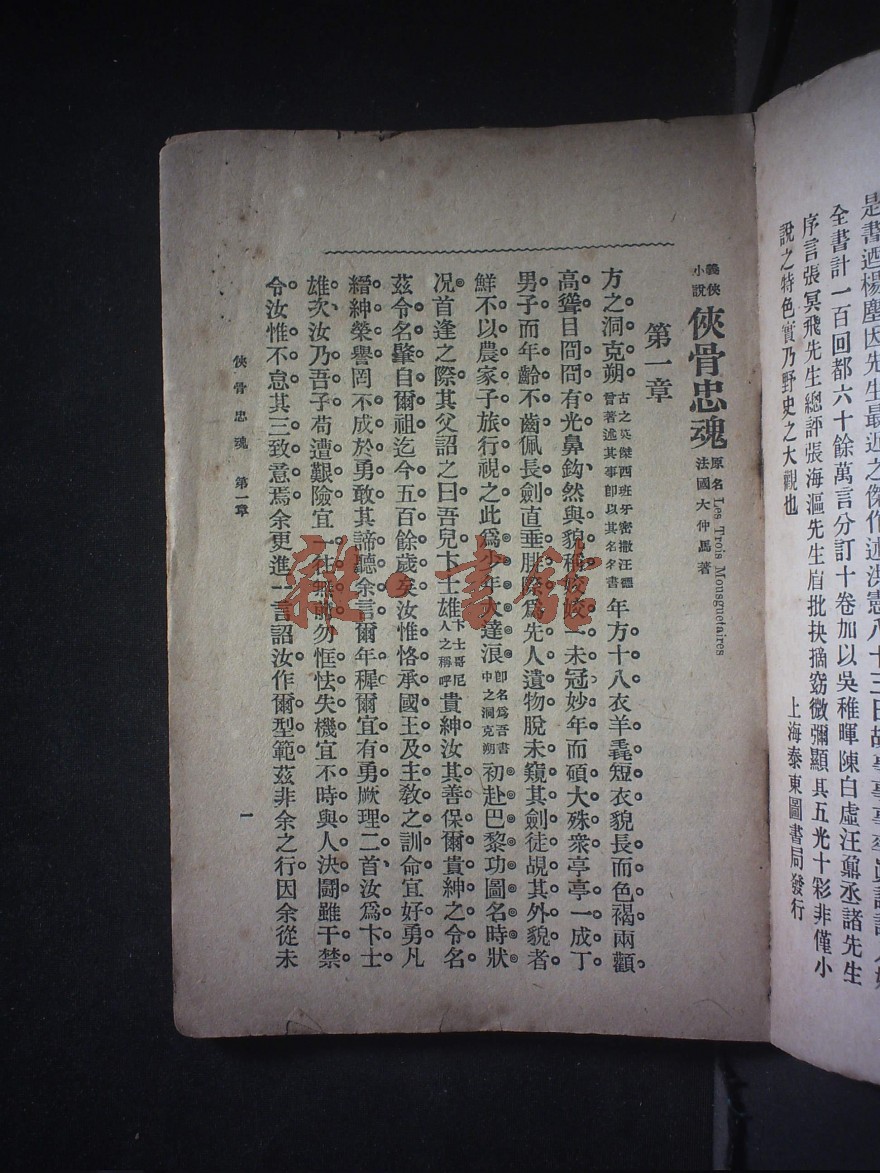 是書迺楊塵因先生最近之傑作述洪憲八十三日故事
全書計一百回都六十餘萬言分訂十卷加以吳稚暉陳白虛汪鼐丞諸先生
序言張冥飛先生總評張海漚先生眉批抉摘窈微彌顯其五光十彩非僅小
說之特色實乃野史之大觀也
上海泰東圖書局發行
義俠小說 俠骨忠魂 原名 Les Trois Mousguetaires 法國大仲馬著
第一章
方之洞克朔 古之英傑西班牙密撒汪 曾著述其事即以其名名書 年方十八衣羊毳短衣貌長而色褐兩顴
高聳目冏冏有光鼻鈎然與貌稱 一未冠妙年而碩大殊衆亭亭一成丁
男子而年齡不齒佩長劍直垂腓際爲先人遺物脫未窺其劍徒覘其外貌者
鮮不以農家子旅行視之此爲少年大達浪 即名爲吾書中之洞克朔 初赴巴黎功圖名時狀
况首途之際其父詔之曰吾兒卞士雄 卞士哥尼人之稱呼 貴紳汝其善保爾貴紳之令名
茲令名肇自爾祖迄今五百餘歲矣汝惟恪承國王及主教之訓命宜好勇凡
縉紳榮譽罔不成於勇敢其諦聽余言爾年穉爾宜有勇厥理二首汝爲卞士
雄次汝乃吾子苟遭艱險宜一往無前勿恇怯失機宜不時與人決鬭雖干禁
令汝惟不怠其三致意焉余更進一言詔汝作爾型範茲非余之行因余從未
俠骨忠魂 第一章
一
雜·書館